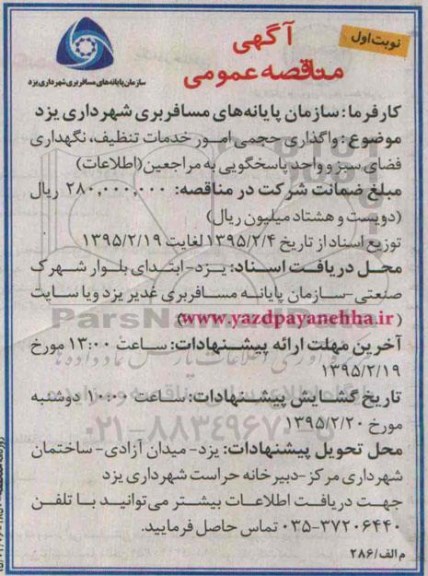 نوبت اول
آگهی
مناقصه عمومی
سازمان پایانه‌های مسافربری شهرداری یزد
کارفرما: سازمان پایانه‌های مسافربری شهرداری یزد
موضوع: واگذاری حجمی امور خدمات تنظیف، نگهداری
فضای سبز و واحد پاسخگویی به مراجعین (اطلاعات)
مبلغ ضمانت شرکت در مناقصه: ۲۸۰,۰۰۰,۰۰۰ ریال
(دویست و هشتاد میلیون ریال)
توزیع اسناد از تاریخ ۱۳۹۵/۲/۴ لغایت ۱۳۹۵/۲/۱۹
محل دریافت اسناد: یزد-ابتدای بلوار شهرک
صنعتی-سازمان پایانه مسافربری غدیر یزد و یا سایت
(www.yazdpayanehha.ir)
آخرین مهلت ارائه پیشنهادات: ساعت ۱۳:۰۰ مورخ
۱۳۹۵/۲/۱۹
تاریخ گشایش پیشنهادات: ساعت ۱۰:۰۰ دوشنبه
مورخ ۱۳۹۵/۲/۲۰
محل تحویل پیشنهادات: یزد- میدان آزادی- ساختمان
شهرداری مرکز-دبیرخانه حراست شهرداری یزد
جهت دریافت اطلاعات بیشتر می‌توانید با تلفن
۰۳۵-۳۷۲۰۶۴۴۰ تماس حاصل فرمایید.
م الف/۲۸۶
ParsNamadData
۰۲۱-۸۸۳۴۹۶۷۰-۵